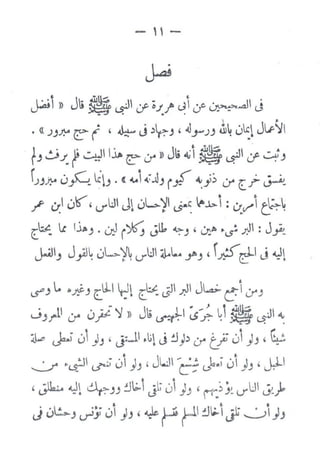 — ١١ —
فصل
فى الصحيحين عن أبى هريرة عن النبى ﷺ قال « أفضل
الأعمال إيمان بالله ورسوله ، وجهاد فى سبيله ، ثم حج مبرور » .
وثبت عن النبى ﷺ أنه قال « من حج هذا البيت فلم يرفث ولم
يفسق خرج من ذنوبه كيوم ولدته أمه » . وإنما يكون مبروراً
باجتماع أمرين : أحدهما بمعنى الإحسان إلى الناس ، كان ابن عمر
يقول : البر شىء هين ، وجه طلق وكلام لين . وهذا مما يحتاج
إليه فى الحج كثيراً ، وهو معاملة الناس بالإحسان بالقول والفعل
ومن أجمع خصال البر التى يحتاج إليها الحاج وغيره ما وصى
به النبى ﷺ أبا جُرَىّ الهجيمى قال « لا تحقرن من المعروف
شيئاً ، ولو أن تفرغ من دلوك فى إناء المستقى ، ولو أن تعطى صلة
الحبل ، ولو أن تعطى شِسْع النعال ، ولو أن تنحى الشىء من
طريق الناس يؤذيهم ، ولو أن تلقى أخاك ووجهك إليه منطلق ،
ولو أن تلقى أخاك المسلم فتسلم عليه ، ولو أن تؤنس وحشان فى